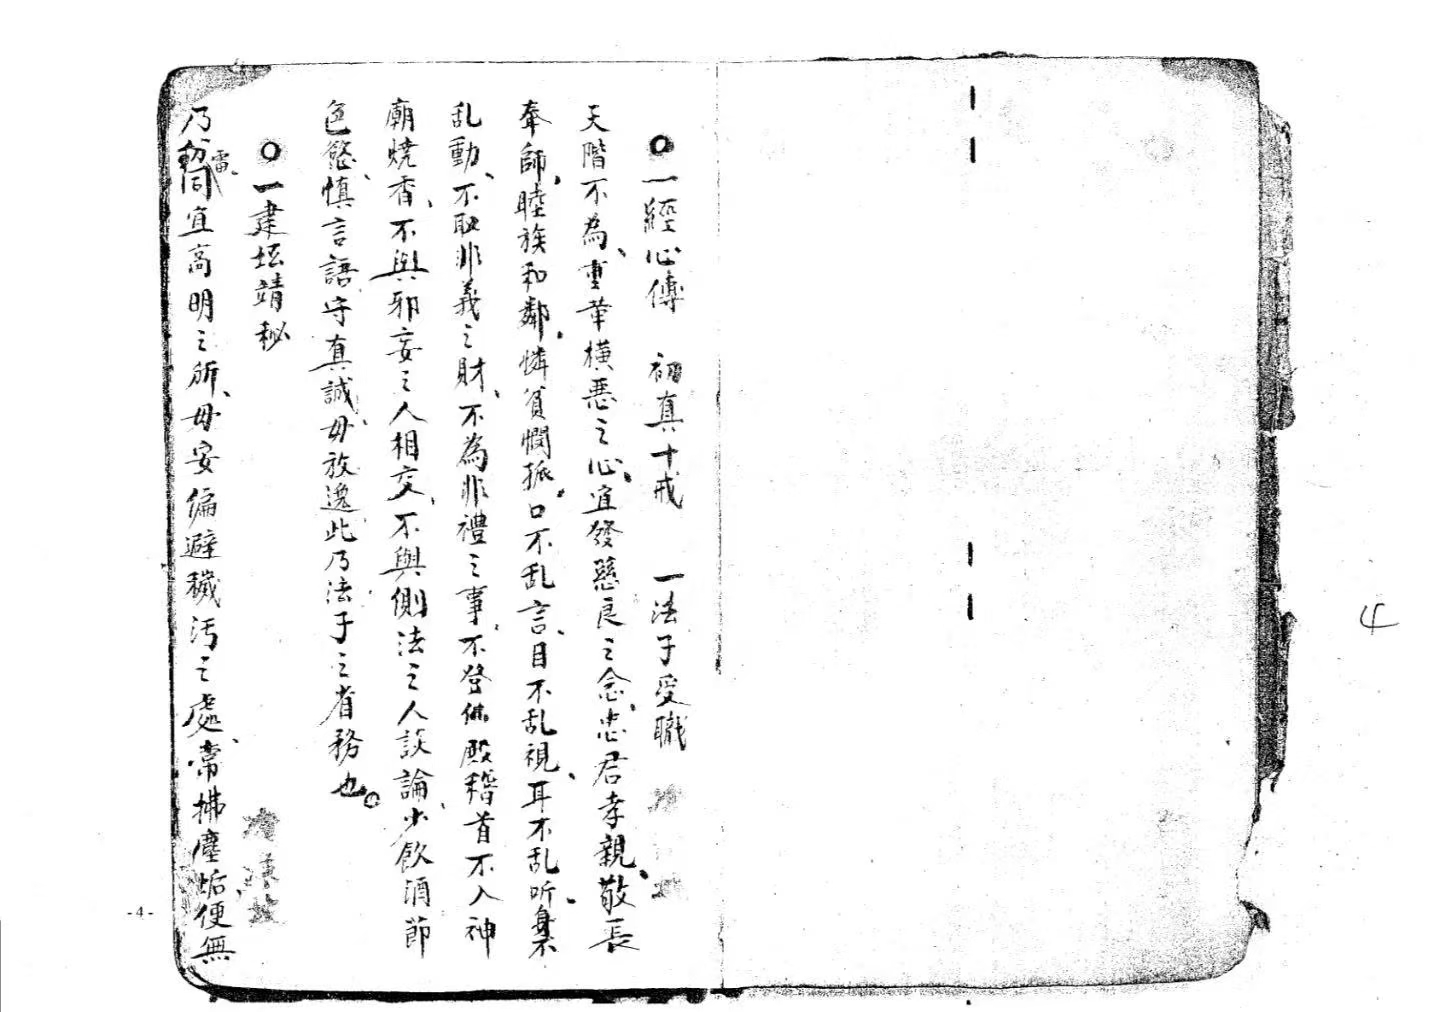 ○一經心傳　初真十戒　一法子受職
天階不為、重華橫惡之心、宜發慈良之念、忠君孝親、敬長
奉師、睦族和鄰、憐貧憫孤。口不乱言、目不乱視、耳不乱听、身不
乱動、不取非義之財、不為非禮之事、不登佛殿稽首不入神
廟燒香、不與邪妄之人相交、不與側法之人談論、少飲酒節
色慾、慎言語守真誠、毋放逸此乃法子之省務也。
○一建坛靖秘
乃雷同宜高明之所、毋安偏避穢污之處、常拂塵垢、便無
-4-
4